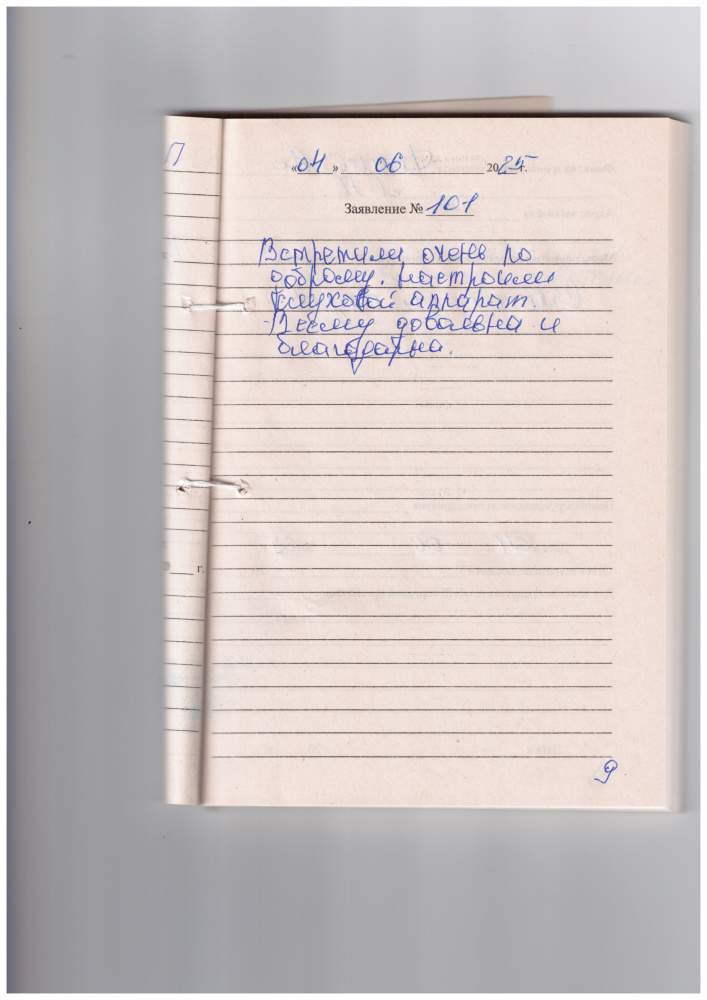 П
«04» 06 2025г.
Заявление № 101
Встретили очень по
доброму. настроили
слуховой аппарат.
Всему довольна и
благодарна.
г.
9